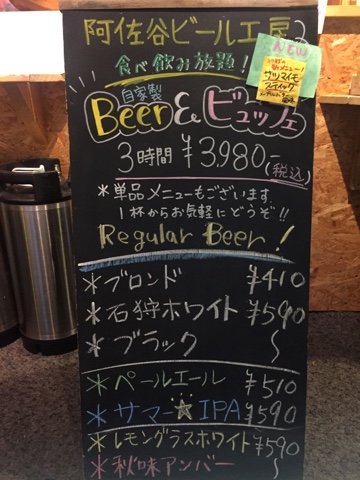 阿佐谷ビール工房
食べ飲み放題!
NEW
新メニュー!
サツマイモ
スティック
自家製
Beer & ビュッフェ
3時間 ¥3,980-
(税込)
*単品メニューもございます
1杯からお気軽にどうぞ!!
Regular Beer!
*ブロンド ¥410
*石狩ホワイト ¥590
*ブラック 〜
*ペールエール ¥510
*サマー★IPA ¥590
*レモングラスホワイト ¥590
*秋味アンバー 〜